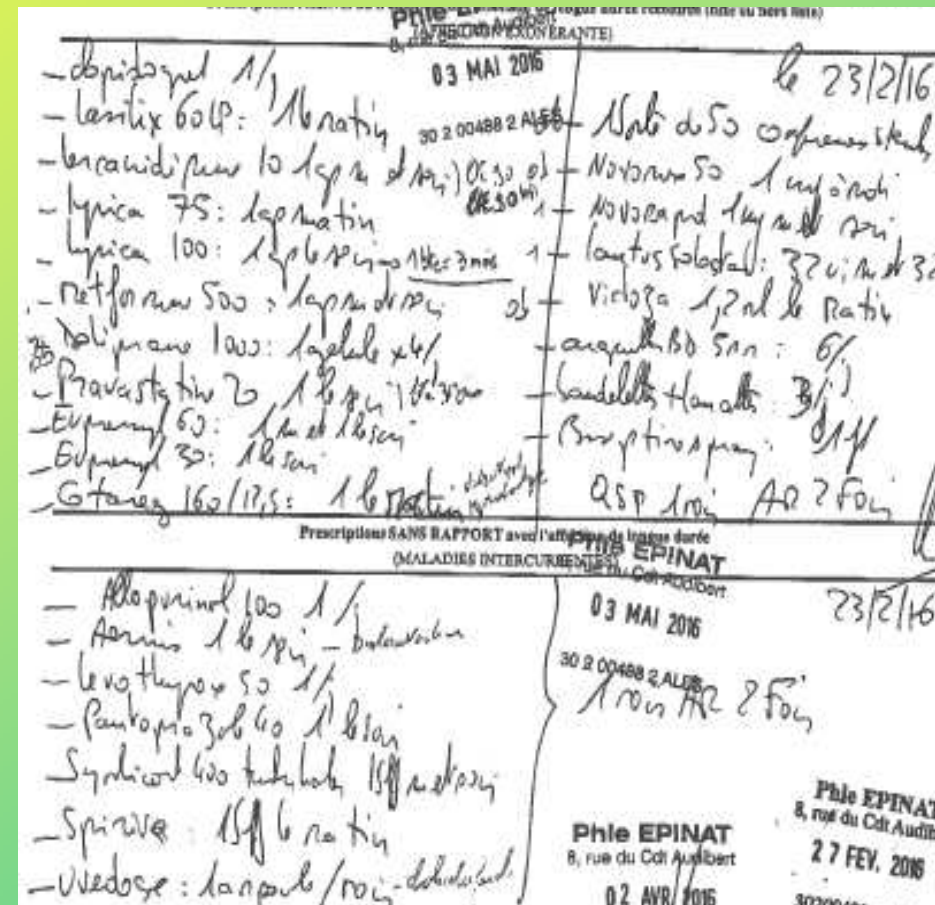 (AFFECTION EXONERANTE)
8, rue du Cdt Audibert
03 MAI 2016
30 2 00488 2 ALES
- clopidogrel 1/j
- Lasilix 60LP: 1 le matin
- lercanidipine 10 1cp m et soir
- lyrica 75: 1cp matin
- lyrica 100: 1cp le soir
- Metformine 500: 1cp m et soir
Doliprane 1000: 1 gelule x4/j
- Pravastatine 20 1 le soir
- Eupressyl 60: 1 m et 1 le soir
- Eupressyl 30: 1 le soir
- Cotareg 160/12,5: 1 le matin
le 23/2/16
- 1 boite de 50
- Novomix 50 1 inj à midi
- Novorapid 1 inj m et soir
- lantus solostar: 32 ui m et 32
- Victoza 1,2 ml le matin
- aiguilles BD 5mm: 6/j
- bandelettes
QSP 1 mois AR 2 Fois
Prescriptions SANS RAPPORT avec l'affection de longue durée
(MALADIES INTERCURRENTES)
Phie EPINAT
8, rue du Cdt Audibert
03 MAI 2016
30 2 00488 2 ALES
23/2/16
- Allopurinol 100 1/j
- Aerius 1 le soir
- levothyrox 50 1/j
- Pantoprazole 40 1 le soir
- Symbicort 400 turbuhaler 1 bff m et soir
- Spiriva 1 bff le matin
- Uvedose: 1 ampoule/mois
1 mois AR 2 Fois
Phie EPINAT
8, rue du Cdt Audibert
02 AVR 2016
Phie EPINAT
8, rue du Cdt Audib
27 FEV. 2016